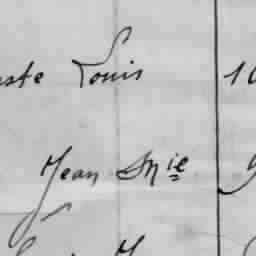 uste Louis 10
Jean Mie